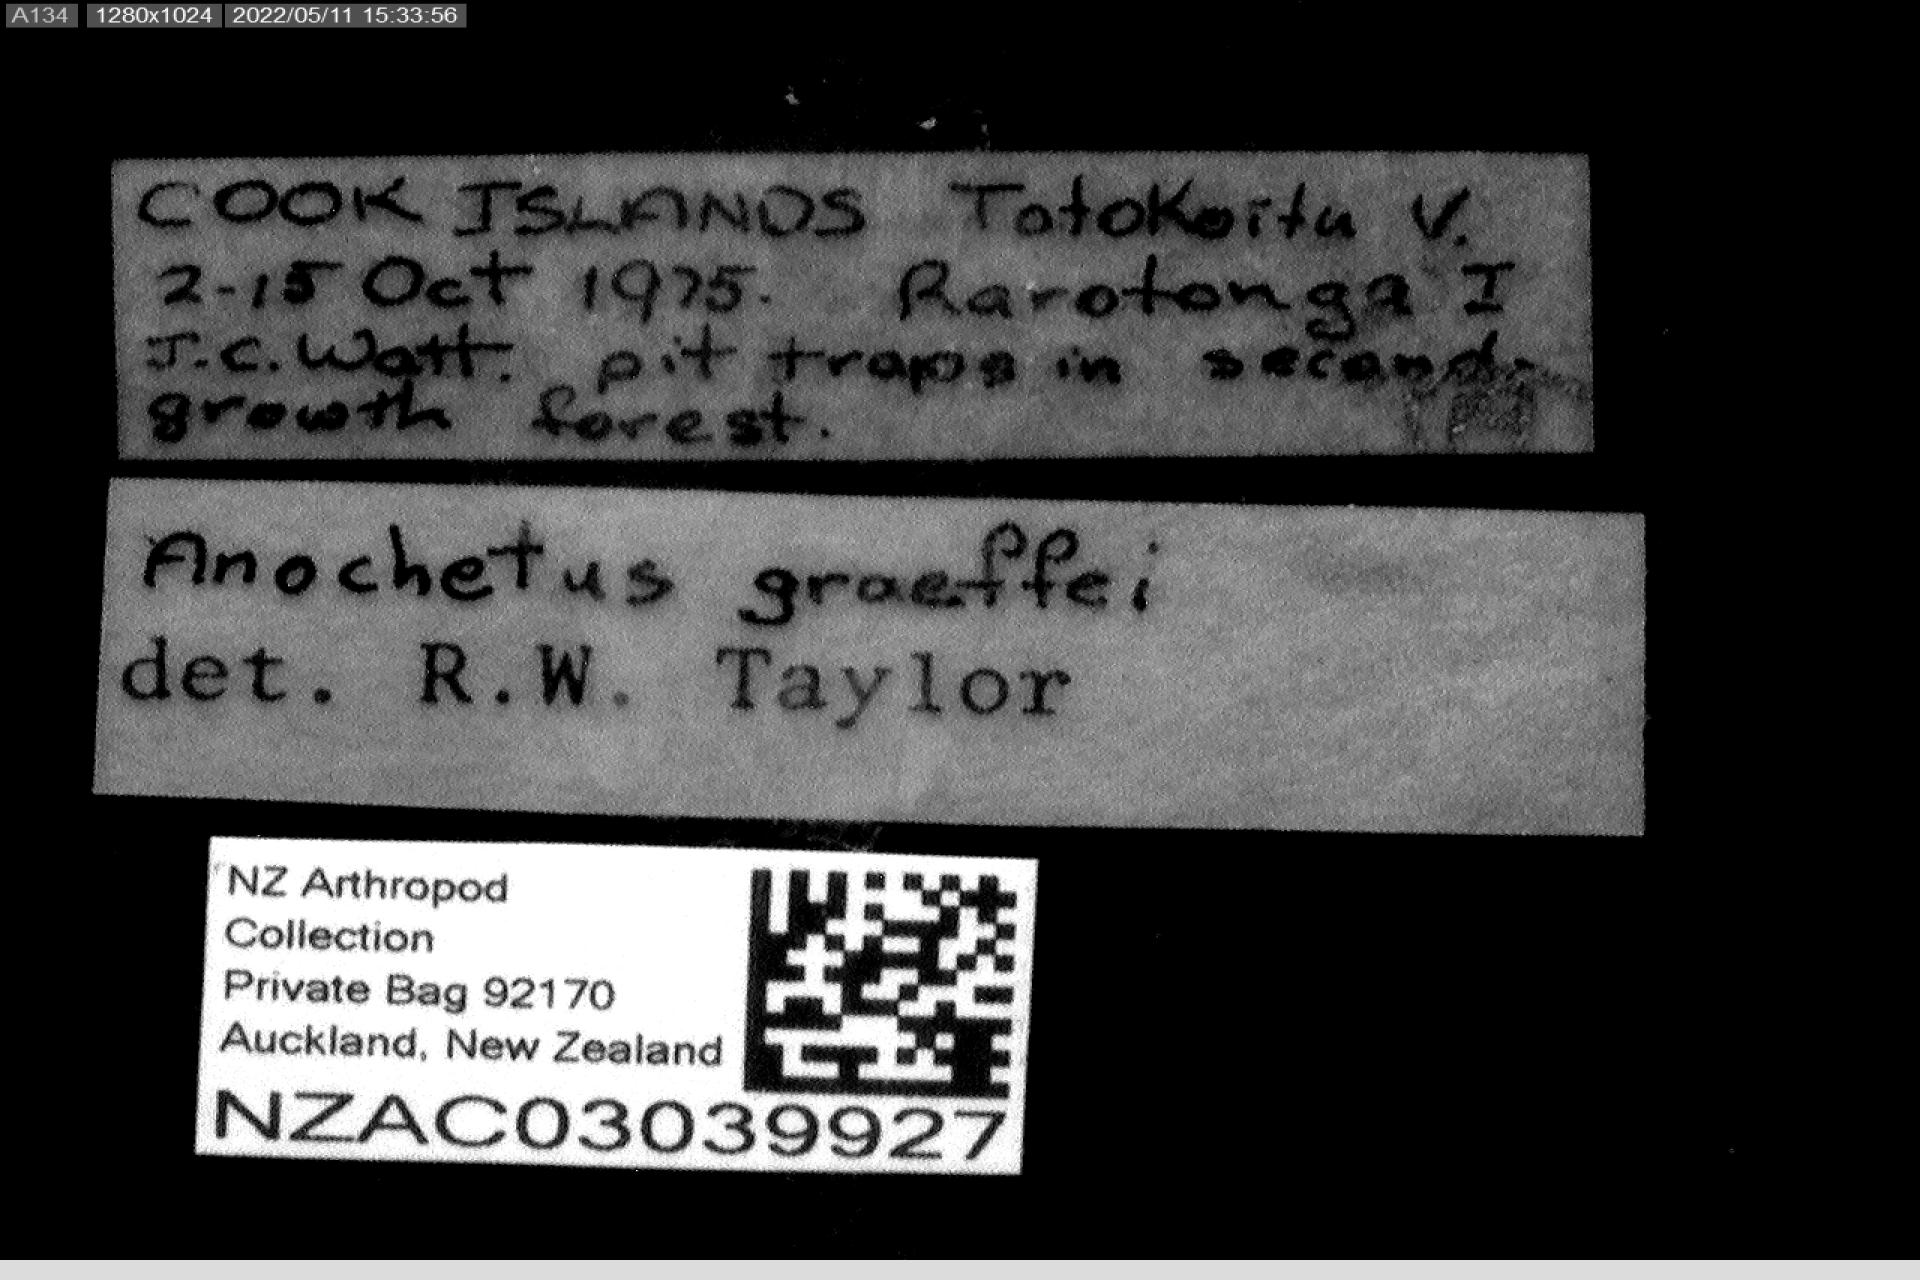 A134 1280x1024 2022/05/11 15:33:56
COOK ISLANDS Totokoitu V.
2-15 Oct 1975. Rarotonga I
J.C. Watt. pit traps in second-
growth forest.
Anochetus graeffei
det. R.W. Taylor
NZ Arthropod
Collection
Private Bag 92170
Auckland, New Zealand
NZAC03039927